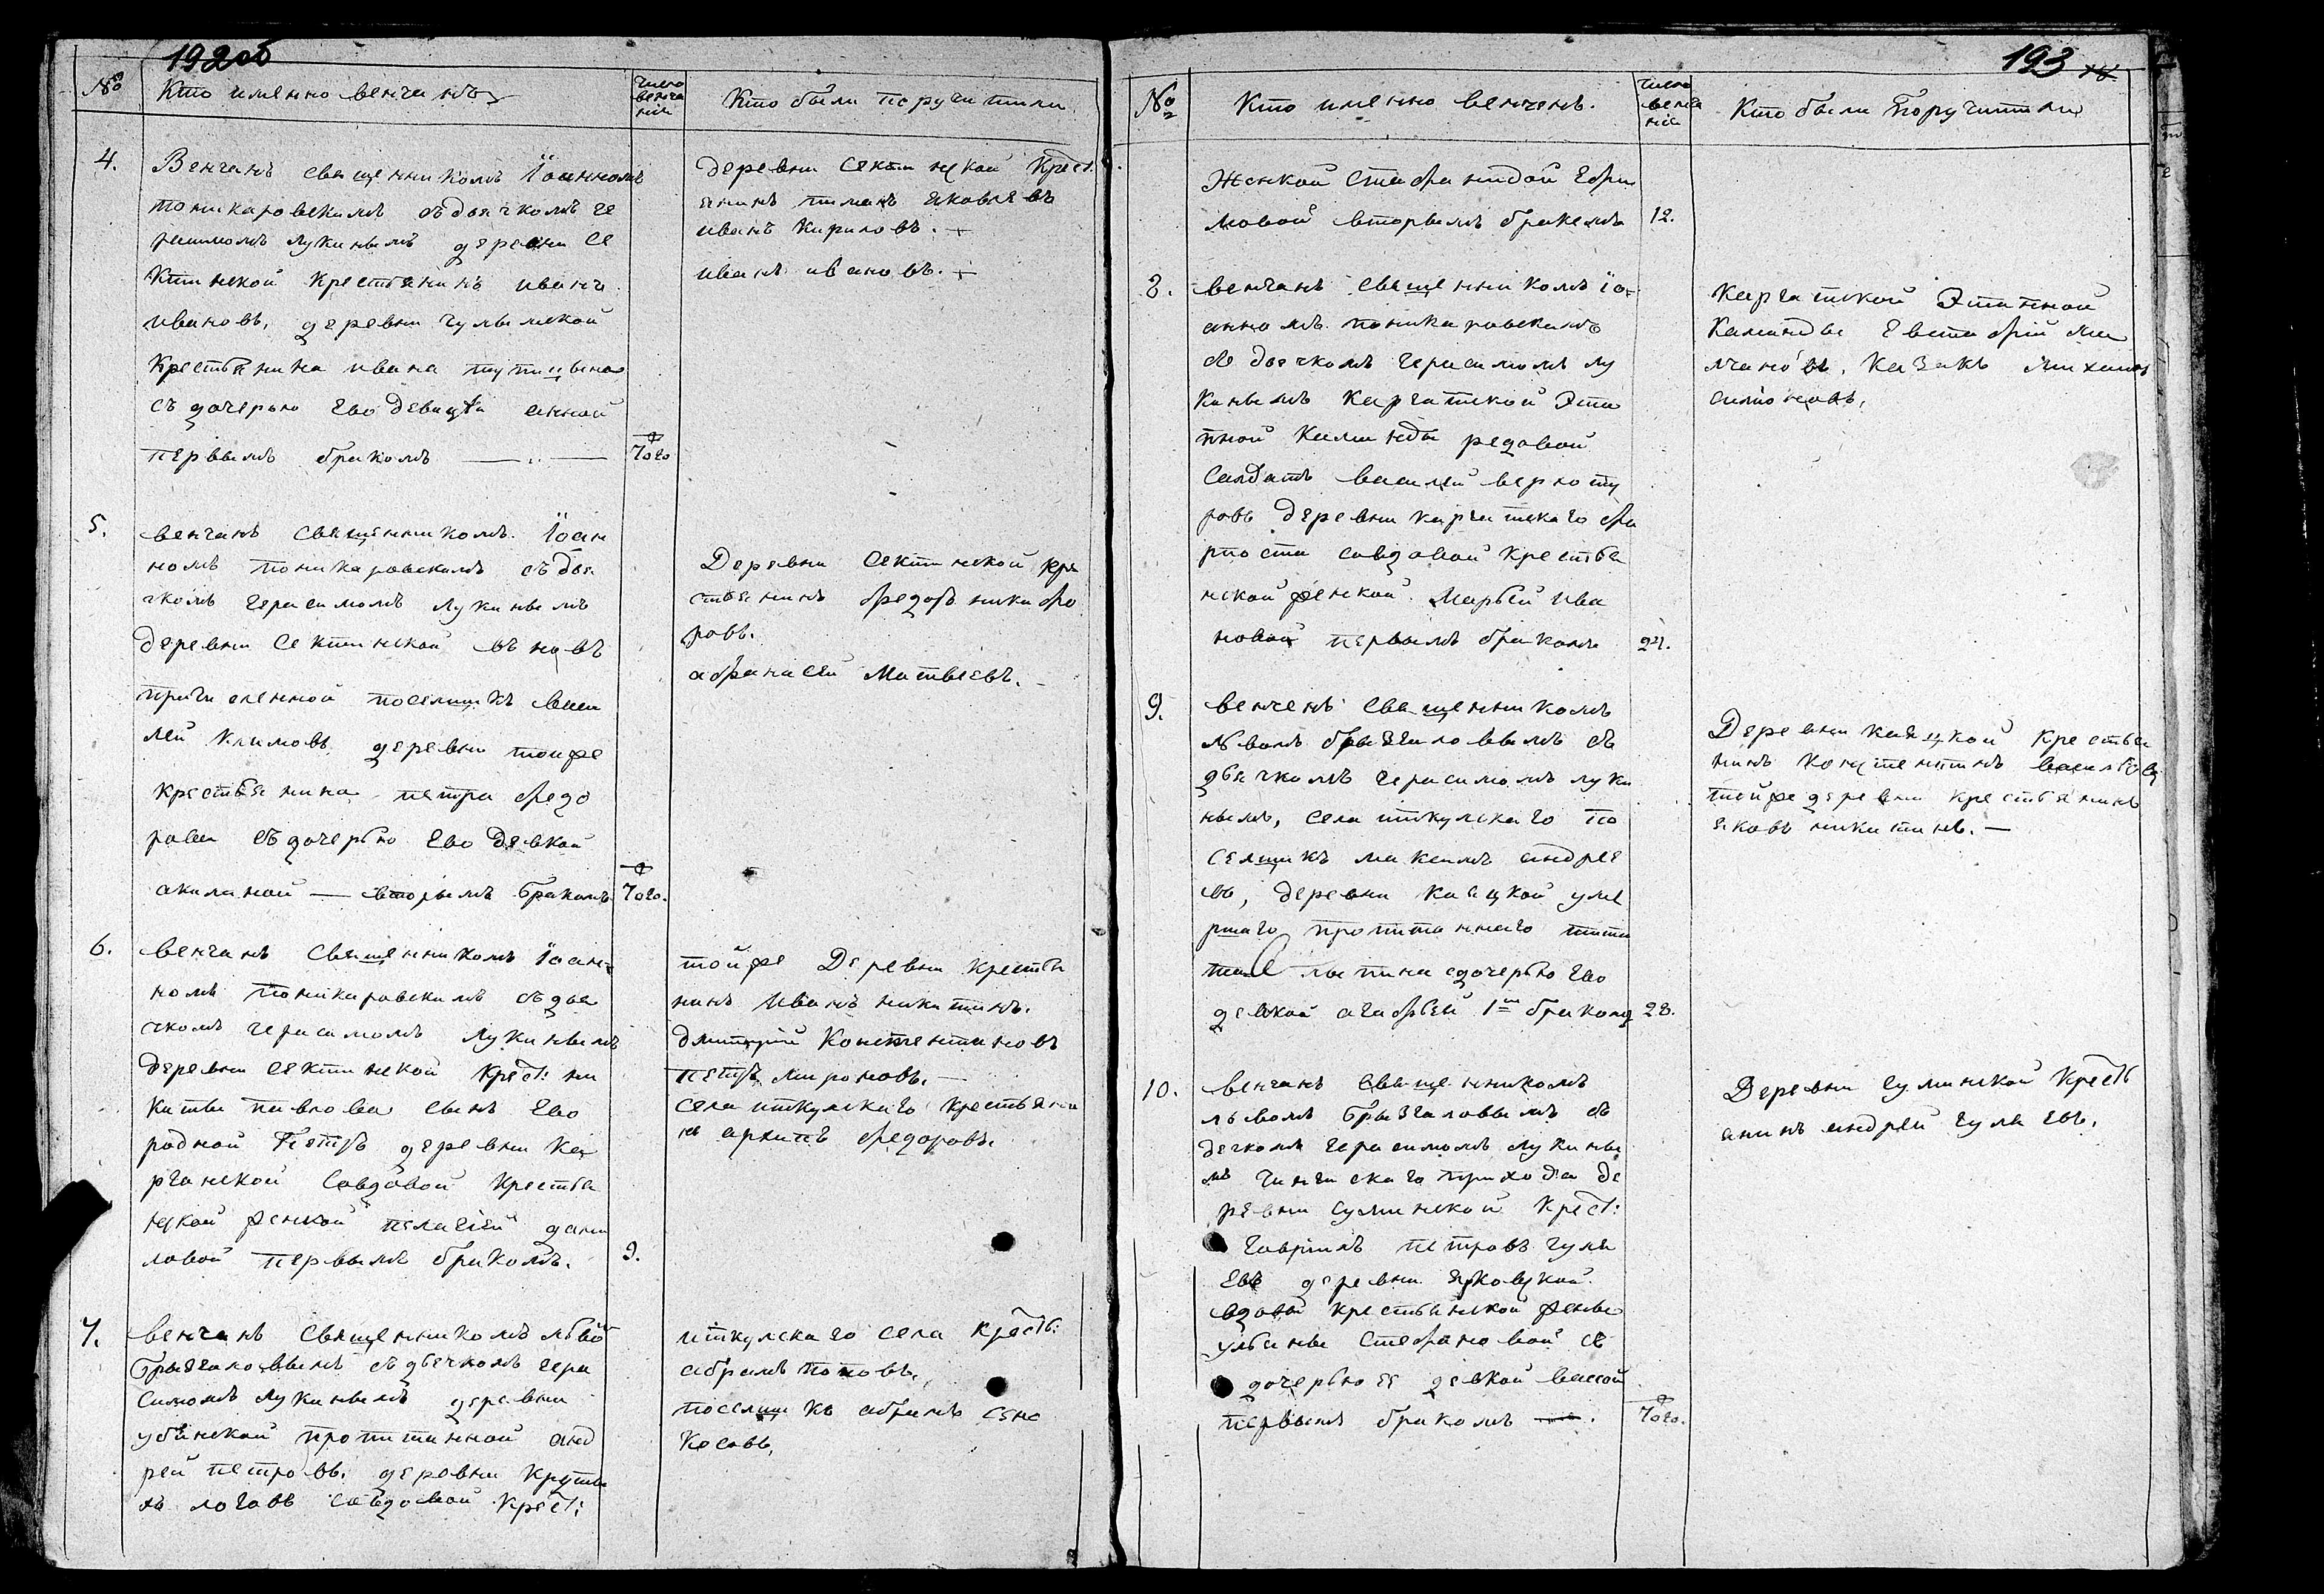 192об
№
Кто именно венчанъ
число
венча
нія
Кто были поручители
4.
Венчанъ священникомъ Іоанномъ
поникаровскимъ съ дьячкомъ ге
расимомъ лукинымъ деревни Се
ктинской крестьянинъ иванъ
ивановъ, деревни чулымской
крестьянина ивана
съ дочерью его девицей анной
первымъ бракомъ
7го
деревни Сектинской крест:
янинъ яковлевъ
иванъ кириловъ.
иванъ ивановъ.
5.
венчанъ священникомъ Іоан
номъ поникаровскимъ съ дья
чкомъ герасимомъ лукинымъ
деревни Сектинской въновъ
причисленной поселщикъ васи
лей климовъ деревни тойже
крестьянина петра федо
рова съ дочерью его девкой
акилиной — вторымъ бракомъ
7го.
Деревни Сектинской кре
стьянинъ федоръ никифо
ровъ.
афанасей Матвіевъ.
6.
венчанъ священникомъ Іоан=
номъ поникаровскимъ съ дья
чкомъ герасимомъ лукинымъ
деревни сектинской крест: ни
киты павлова сынъ его
родной Петръ деревни ка
рганской совдовой крестья
нской женкой пелагіей дани
ловой первымъ бракомъ.
9.
тойже Деревни крестья
нинъ иванъ никитинъ.
дмитрій Константиновъ
петръ мироновъ.
села иткулскаго крестьяни
нъ архипъ федоровъ.
7.
венчанъ священникомъ львомъ
брызгаловымъ съ дьечкомъ гера
симомъ лукинымъ деревни
убинской пропитанной анд
рей петровъ, деревни круты
хъ логовъ совдовой крест:
иткулскаго села крест:
абрамъ поповъ,
поселщикъ абрамъ

193
№
Кто именно венченъ.
число
венча
нія
Кто были Поручители
женкой стефанидой ефи
мовой вторымъ бракомъ
12.
8.
венчанъ священникомъ Іо=
анномъ поникаровскимъ
съ дьячкомъ герасимомъ лу
кинымъ каргатской Эта
пной каманды редовой
салдатъ василей верхоту
ровъ деревни каргатскаго фа
рпоста совдовой крестья
нской женкой Марьей ива
новой первымъ бракомъ
24.
каргатской Этапной
каманды Евстафій мо
лчановъ, казакъ михаилъ
симоновъ,
9.
венченъ священникомъ
львомъ брызгаловымъ съ
дьячкомъ герасимомъ луки
нымъ, села иткулскаго по
селщикъ максимъ андрее
въ, деревни каяцкой уме
ршаго пропитаннаго
сдочерью его
девкой агафьей 1ш бракомъ
28.
Деревни каяцкой крестья
нинъ констентинъ васильевъ
тойже деревни крестьянинъ
яковъ никитинъ. —
10.
венчанъ священникомъ
львомъ брызгаловымъ съ
дечкомъ герасимомъ лукины
мъ чингискаго прихода де
ревни сулинской крест:
гаврилъ петровъ гуля
евъ деревни ярковской
вдовы крестьянской женки
ульяны стефановой съ
дочерью ея девкой васой
первымъ бракомъ
7го.
Деревни сулинской крестъ
янинъ андрей гуляевъ.